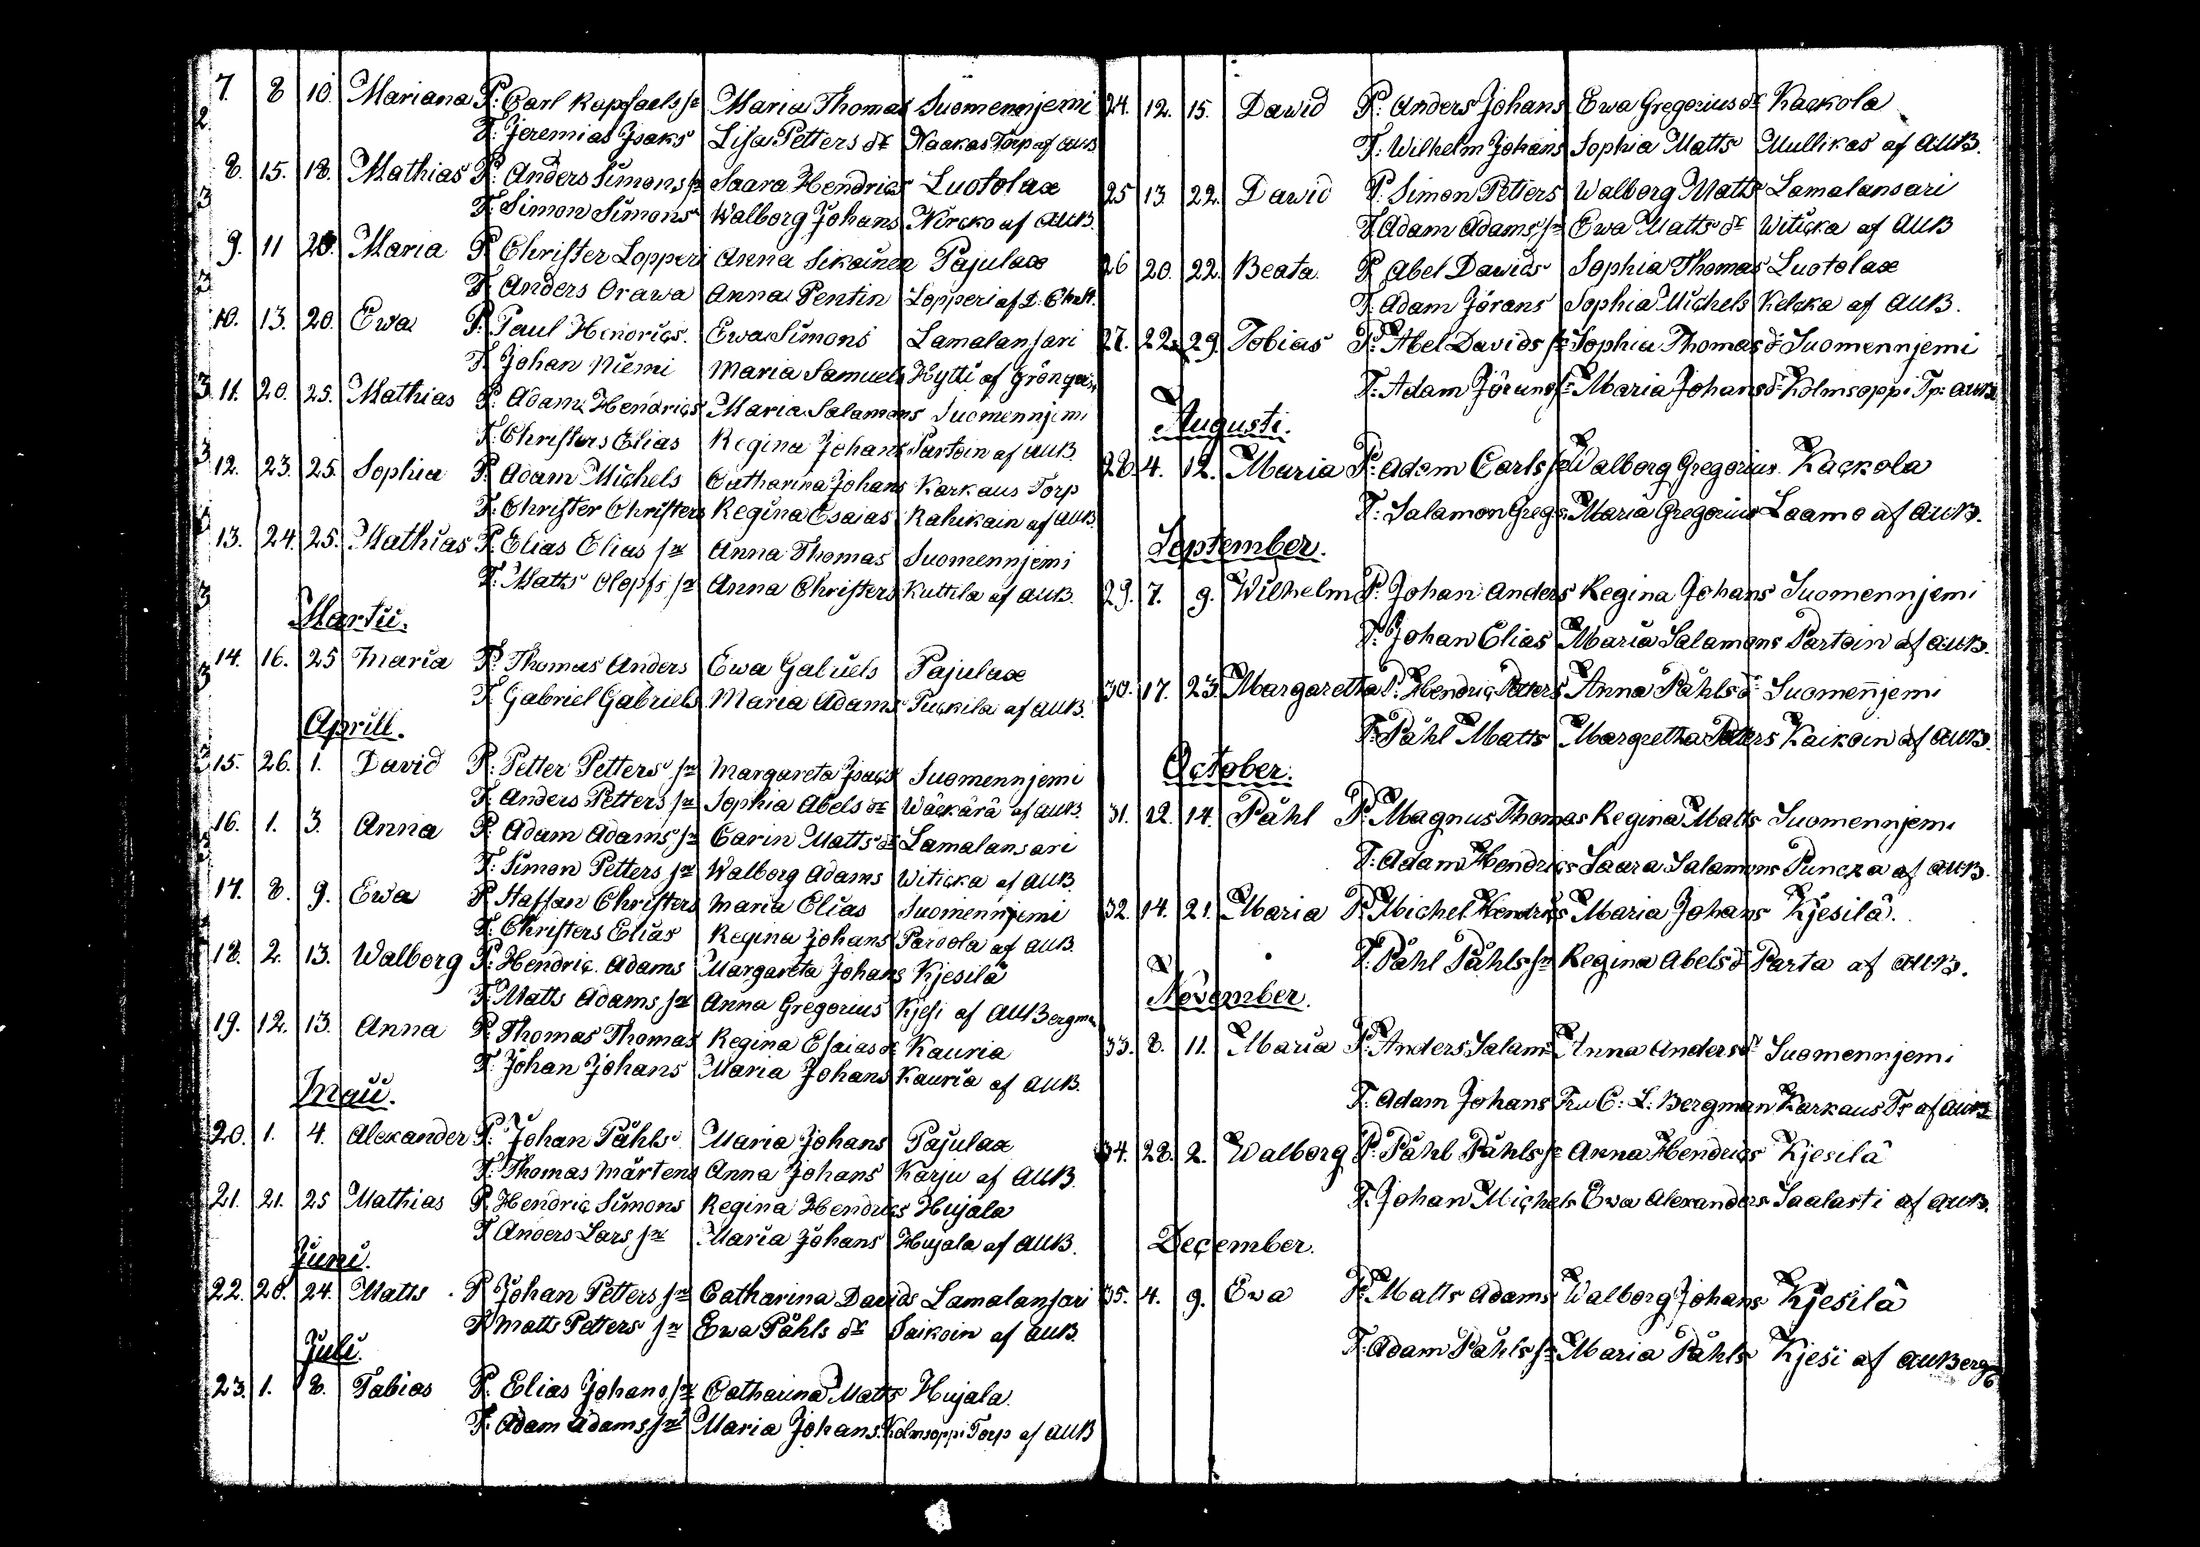 7. 8 10. Mariana P: Carl Kapfaels sn Maria Thomas Suomennjemi
2
T: Jeremias Jsaks Lisa Petters dr Naakas Torp af AUB
8. 15. 18. Mathias P: Anders Simons sn Saara Hendrics Luotolax
3
T: Simon Simons Walborg Johans Nircko af AUB.
9. 11 20. Maria P Christer Lopperi Anna Sikainen Pajulax
3
T Anders Orawa Anna Pentin Lopperi af D. Chrst.
10. 13. 20. Ewa P. Paul Hendrics. Ewa Simons Lamalansari
T. Johan Niemi Maria Samuels Hytti af Grönqvist
3 11. 20. 25. Mathias P. Adam Hendrics Maria Salamons Suomennjemi
T. Christers Elias Regina Johans Partain af AUB.
3
12. 23. 25. Sophia P. Adam Michels Catharina Johans Karkaus Torp
T: Christer Christers Regina Esaias Rahikain af AUB.
13. 24. 25. Mathias P. Elias Elias sn Anna Thomas Suomennjemi
T. Matts Olofs sn Anna Christers Kuttila af AUB.
3
Martii.
14. 16. 25 Maria P. Thomas Anders Ewa Galuels Pajulax
3
T. Gabriel Gabriels Maria Adams Puckila af AUB.
Aprill.
15. 26. 1. David P: Petter Petters sn Margareta Jsacs Suomennjemi
T. Anders Petters sn Sophia Abels dr Wäckärä af AUB.
16. 1. 3. Anna P. Adam Adams sn Carin Matts dr Lamalansari
T: Simon Petters sn Walborg Adams Witicka af AUB.
17. 8. 9. Ewa P. Staffan Christers Maria Elias Suomennjemi
T: Christers Elias Regina Johans Paroola af AUB.
18. 2. 13. Walborg P: Hendric Adams Margareta Johans Kjesilä
T. Matts Adams sn Anna Gregorius Kjesi af AUBergman
19. 12. 13. Anna P. Thomas Thomas Regina Esaias dr Kauria
T. Johan Johans Maria Johans Kauria af AUB.
Maii.
20. 1. 4. Alexander P. Johan Påhls Maria Johans Pajulax
T. Thomas Mårtens Anna Johans Karju af AUB.
21. 21. 25 Mathias P. Hendric Simons Regina Hendrics Hujala
T Anders Lars sn Maria Johans Hujala af AUB.
Junii.
22. 20. 24. Matts P Johan Petters sn Catharina Davids Lamalansari
T Matts Petters sn Ewa Påhls dr Saikoin af AUB.
Juli.
23. 1. 8. Tabias P. Elias Johans sn Catharina Matts Hujala.
T. Adam Adams sn Maria Johans. Kolmsoppi Torp af AUB
24. 12. 15. Dawid P. Anders Johans Ewa Gregorius dr Kackola
T: Wilhelm Johans Sophia Matts Mullikas af AUB.
25 13. 22. Dawid P. Simon Petters Walborg Matts Lamalansari
T. Adam Adams sn Ewa Matts dr Witicka af AUB
26 20. 22. Beata P. Abel Dawids Sophia Thomas Luotolax
T. Adam Jörans Sophia Michels Kelcka af AUB.
27. 22. 29. Tobias P. Abel Davids sn Sophia Thomas dr Suomennjemi
T: Adam Jörans sn Maria Johans dr Kolmsoppi Tp: AUB
Augusti.
28. 4. 12. Maria P: Adam Carls sn Walborg Gregorius. Kackola
T: Salamon Gregs Maria Gregorius Laamo af AUB.
September.
29. 7. 9. Wilhelm P. Johan Anders Regina Johans Suomennjemi
T: Johan Elias Maria Salamons Partain af AUB.
30. 17. 23. Margaretha P. Hendric Petters Anna Påhls dr Suomennjemi
T: Påhl Matts Margretha Petters Kaikoin af AUB.
October.
31. 12. 14. Påhl P. Magnus Thomas Regina Matts Suomennjemi
T: Adam Hendrics Saara Salamons Puncka af AUB.
32. 14. 21. Maria P. Michel Hendrics Maria Johans Kjesilä.
T: Påhl Påhls sn Regina Abels dr Parta af AUB.
November.
33. 8. 11. Maria P. Anders Salam Anna Anders dr Suomennjemi
T. Adam Johans Fru C: L: Bergman Karkaus Tr af AUB
34. 28. 2. Walborg P: Påhl Påhls sn Anna Hendrics Kjesilä
T. Johan Michels Ewa Alexanders Saalasti af AUB.
December.
35. 4. 9. Ewa P. Matts Adams Walborg Johans Kjesilä
T: Adam Påhls sn Maria Påhls Kjesi af AUBergm